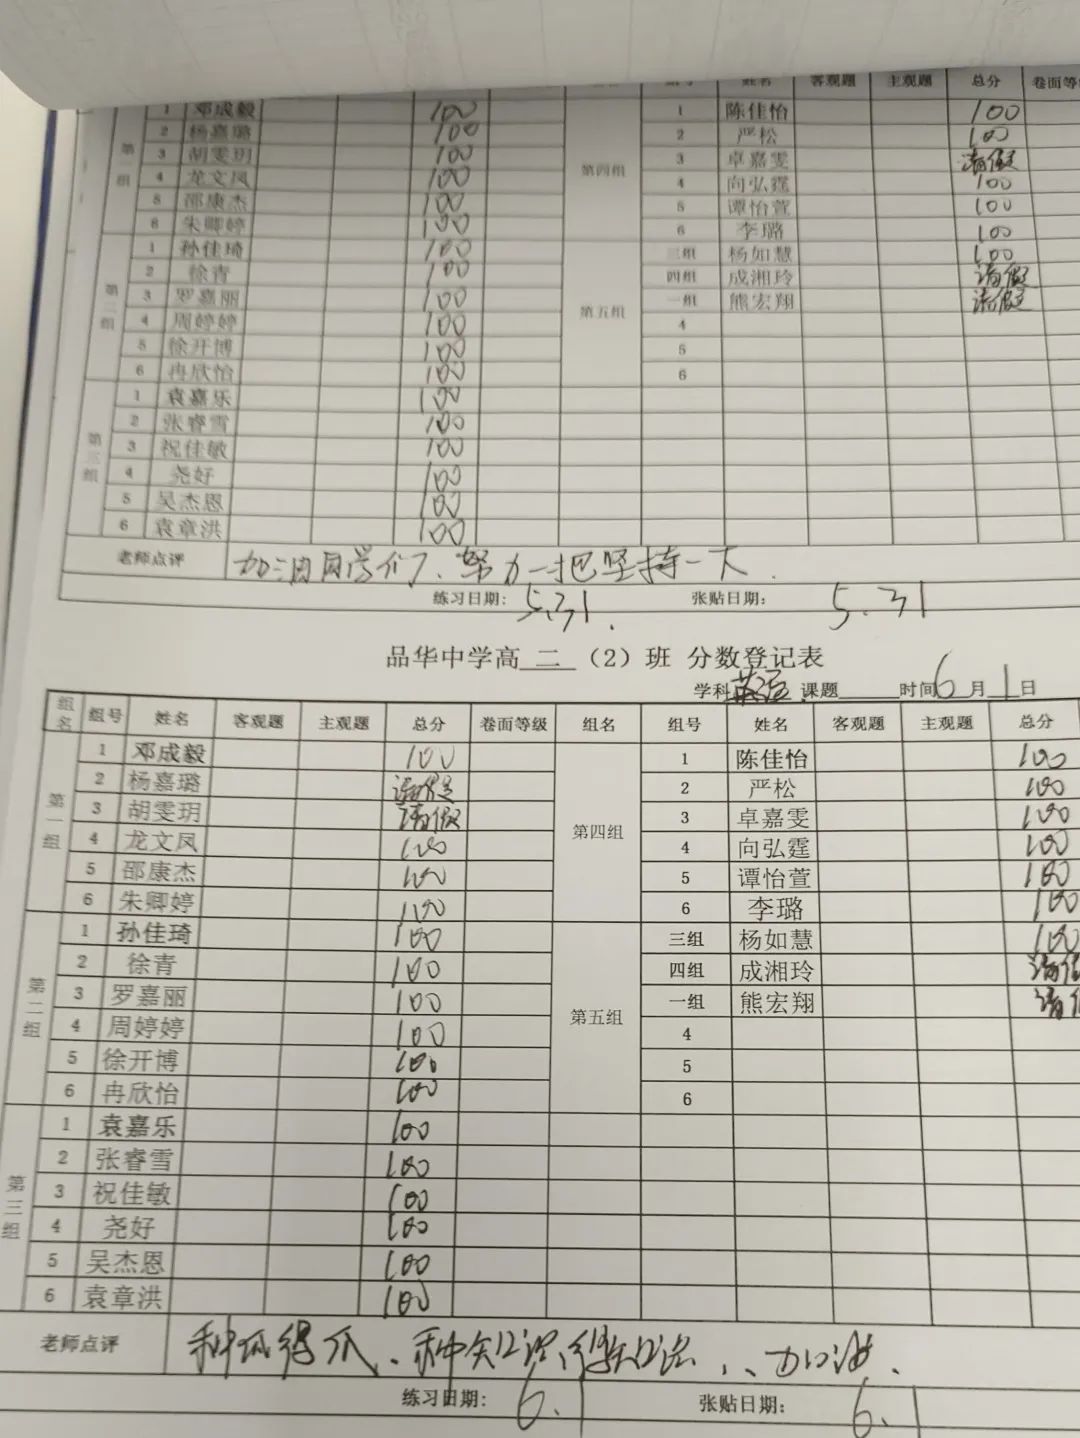 组号 姓名 客观题 主观题 总分 卷面等
第一组 1 邓成毅 100 第四组 1 陈佳怡 100
2 杨嘉璐 100 2 严松 100
3 胡雯玥 100 3 卓嘉雯 请假
4 龙文凤 100 4 向弘霆 100
5 邵康杰 100 5 谭怡萱 100
6 朱卿婷 100 6 李璐 100
第二组 1 孙佳琦 100 第五组 三组 杨如慧 100
2 徐青 100 四组 成湘玲 请假
3 罗嘉丽 100 一组 熊宏翔 请假
4 周婷婷 100 4
5 徐开博 100 5
6 冉欣怡 100 6
第三组 1 袁嘉乐 100
2 张睿雪 100
3 祝佳敏 100
4 尧好 100
5 吴杰恩 100
6 袁章洪 100
老师点评 加油同学们、努力一把坚持一下.
练习日期: 5.31. 张贴日期: 5.31
品华中学高 二 (2)班 分数登记表
学科 英语 课题 时间 6 月 1 日
组名 组号 姓名 客观题 主观题 总分 卷面等级 组名 组号 姓名 客观题 主观题 总分
第一组 1 邓成毅 100 第四组 1 陈佳怡 100
2 杨嘉璐 请假 2 严松 100
3 胡雯玥 请假 3 卓嘉雯 100
4 龙文凤 100 4 向弘霆 100
5 邵康杰 100 5 谭怡萱 100
6 朱卿婷 100 6 李璐 100
第二组 1 孙佳琦 100 第五组 三组 杨如慧 100
2 徐青 100 四组 成湘玲 请假
3 罗嘉丽 100 一组 熊宏翔 请假
4 周婷婷 100 4
5 徐开博 100 5
6 冉欣怡 100 6
第三组 1 袁嘉乐 100
2 张睿雪 100
3 祝佳敏 100
4 尧好 100
5 吴杰恩 100
6 袁章洪 100
老师点评 种瓜得瓜、种知识得知识、、加油.
练习日期: 6.1 张贴日期: 6.1